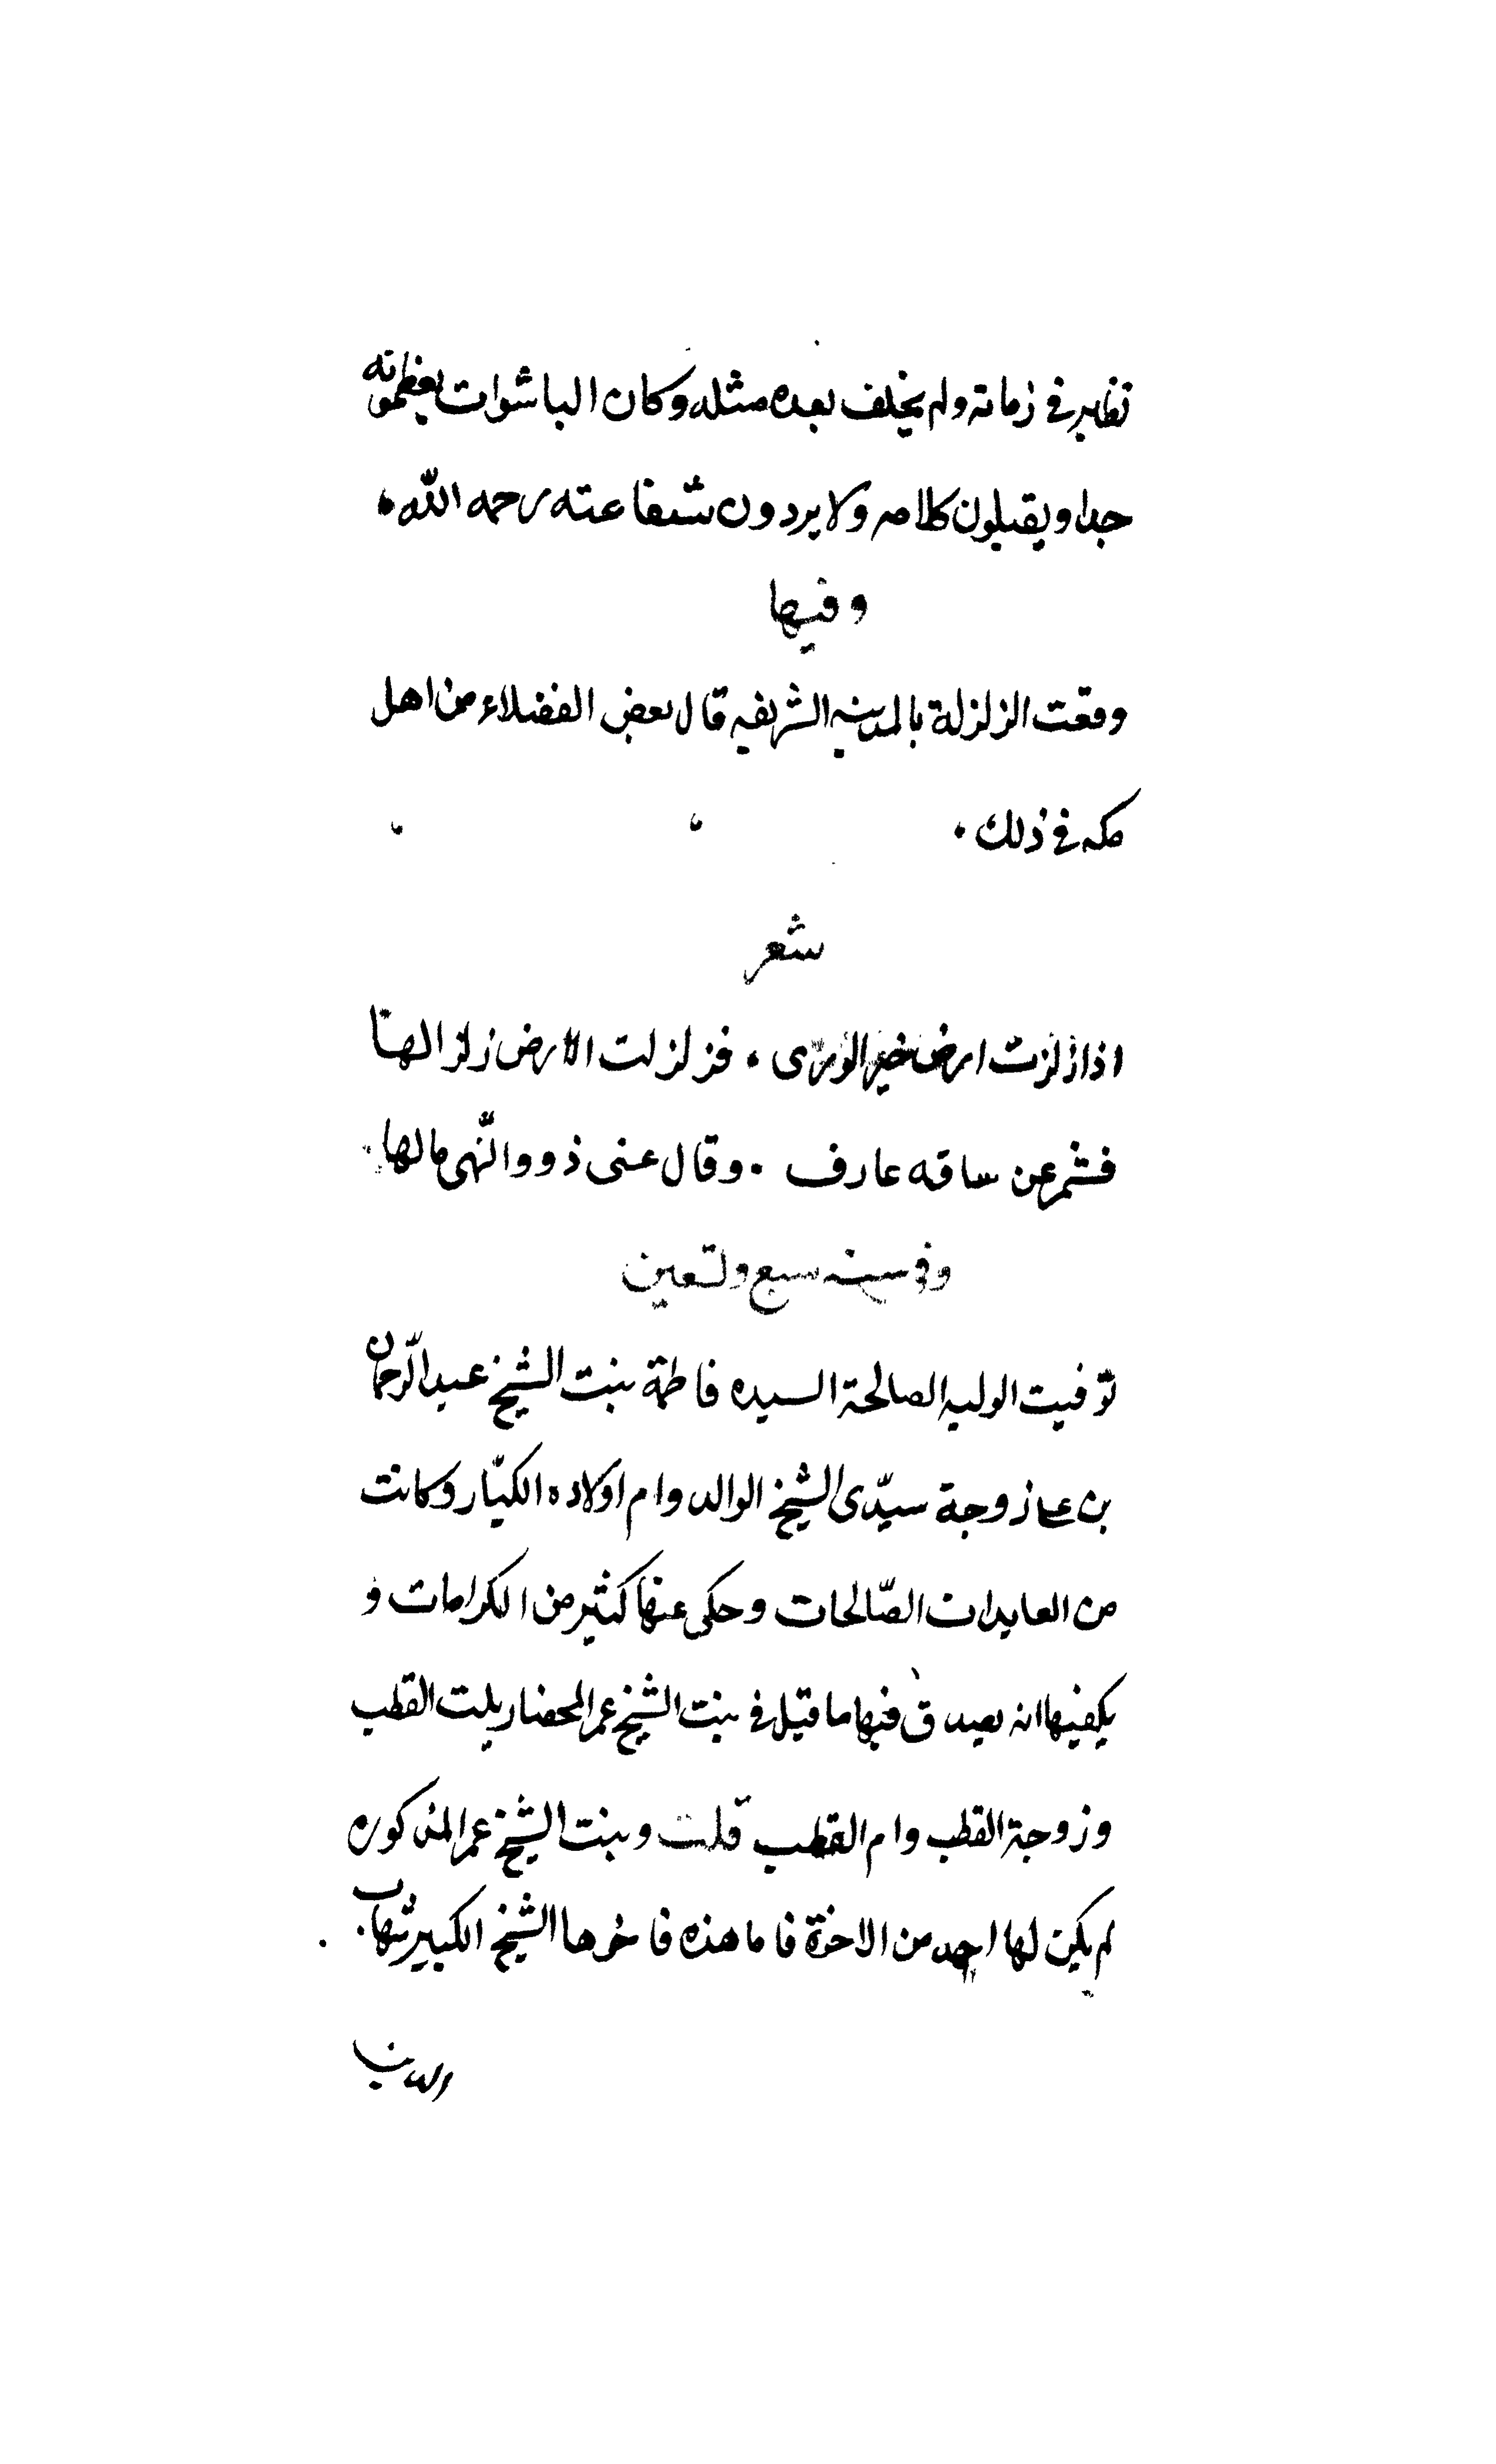 نظير في زمانه ولم يخلف بعده مثله وكان الباشوات يعظمونه
جدا ويقبلون كلامه ولا يردون شفاعته رحمه الله
وفيها
وقعت الزلزلة بالمدينه الشريفه قال بعض الفضلاء من اهل
مكه في ذلك
شعر
اذا زلزت ارض خير الورى . فزلزلت الارض زلزالها
فشمر عن ساقه عارف . وقال عنى ذووا النّهى مالها
وفي سنه سبع وتسعين
توفيت الوليه الصالحة السيده فاطمة بنت الشيخ عبد الرّحمان
بن زوجة سيّدى الشيخ الوالد وام اولاده الكبّار وكانت
من العابدات الصّالحات وحكى عنها كثير من الكرامات و
يكفيها انه يصدق فيها ما قيل في بنت الشيخ عمر المحضار بنت القطب
وزوجة القطب وام القطب قلت وبنت الشيخ عمر المذكوره
لم يكن لها احد من الاخوة فاما هذه فاخوها الشيخ الكبير شهاب
الدين